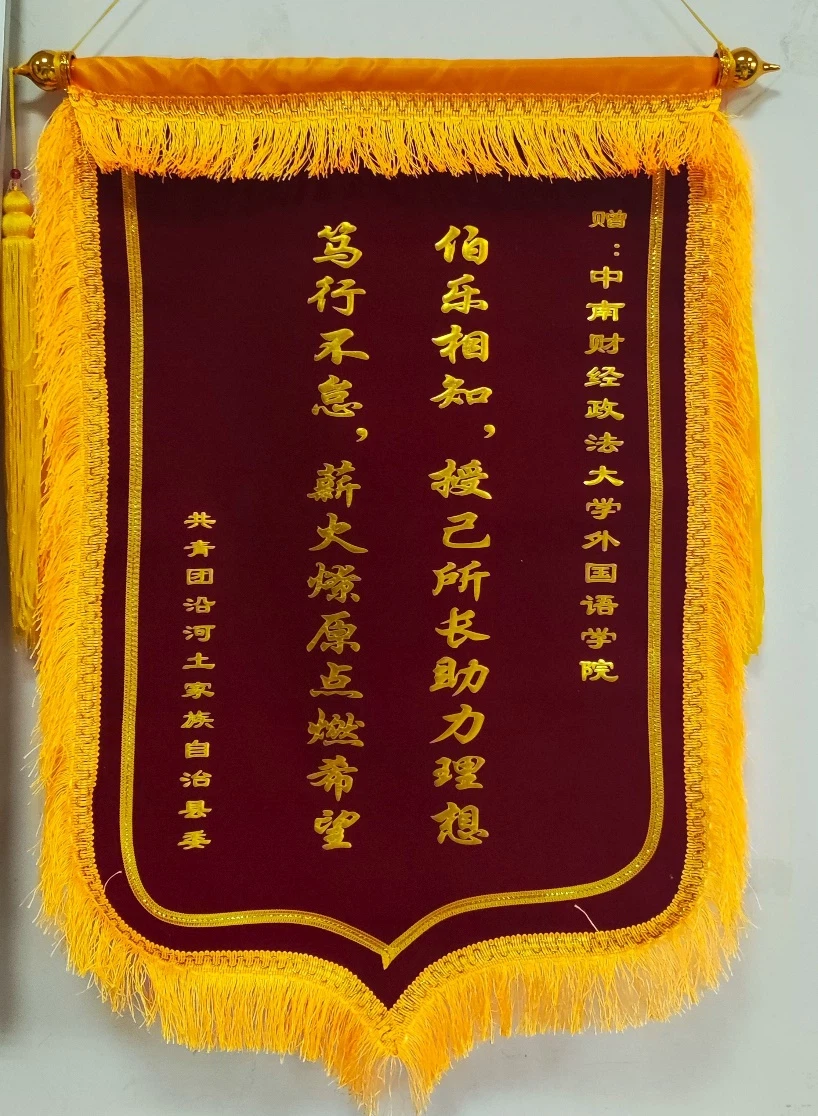 赠：中南财经政法大学外国语学院
伯乐相知，授己所长助力理想
笃行不怠，薪火燎原点燃希望
共青团沿河土家族自治县委